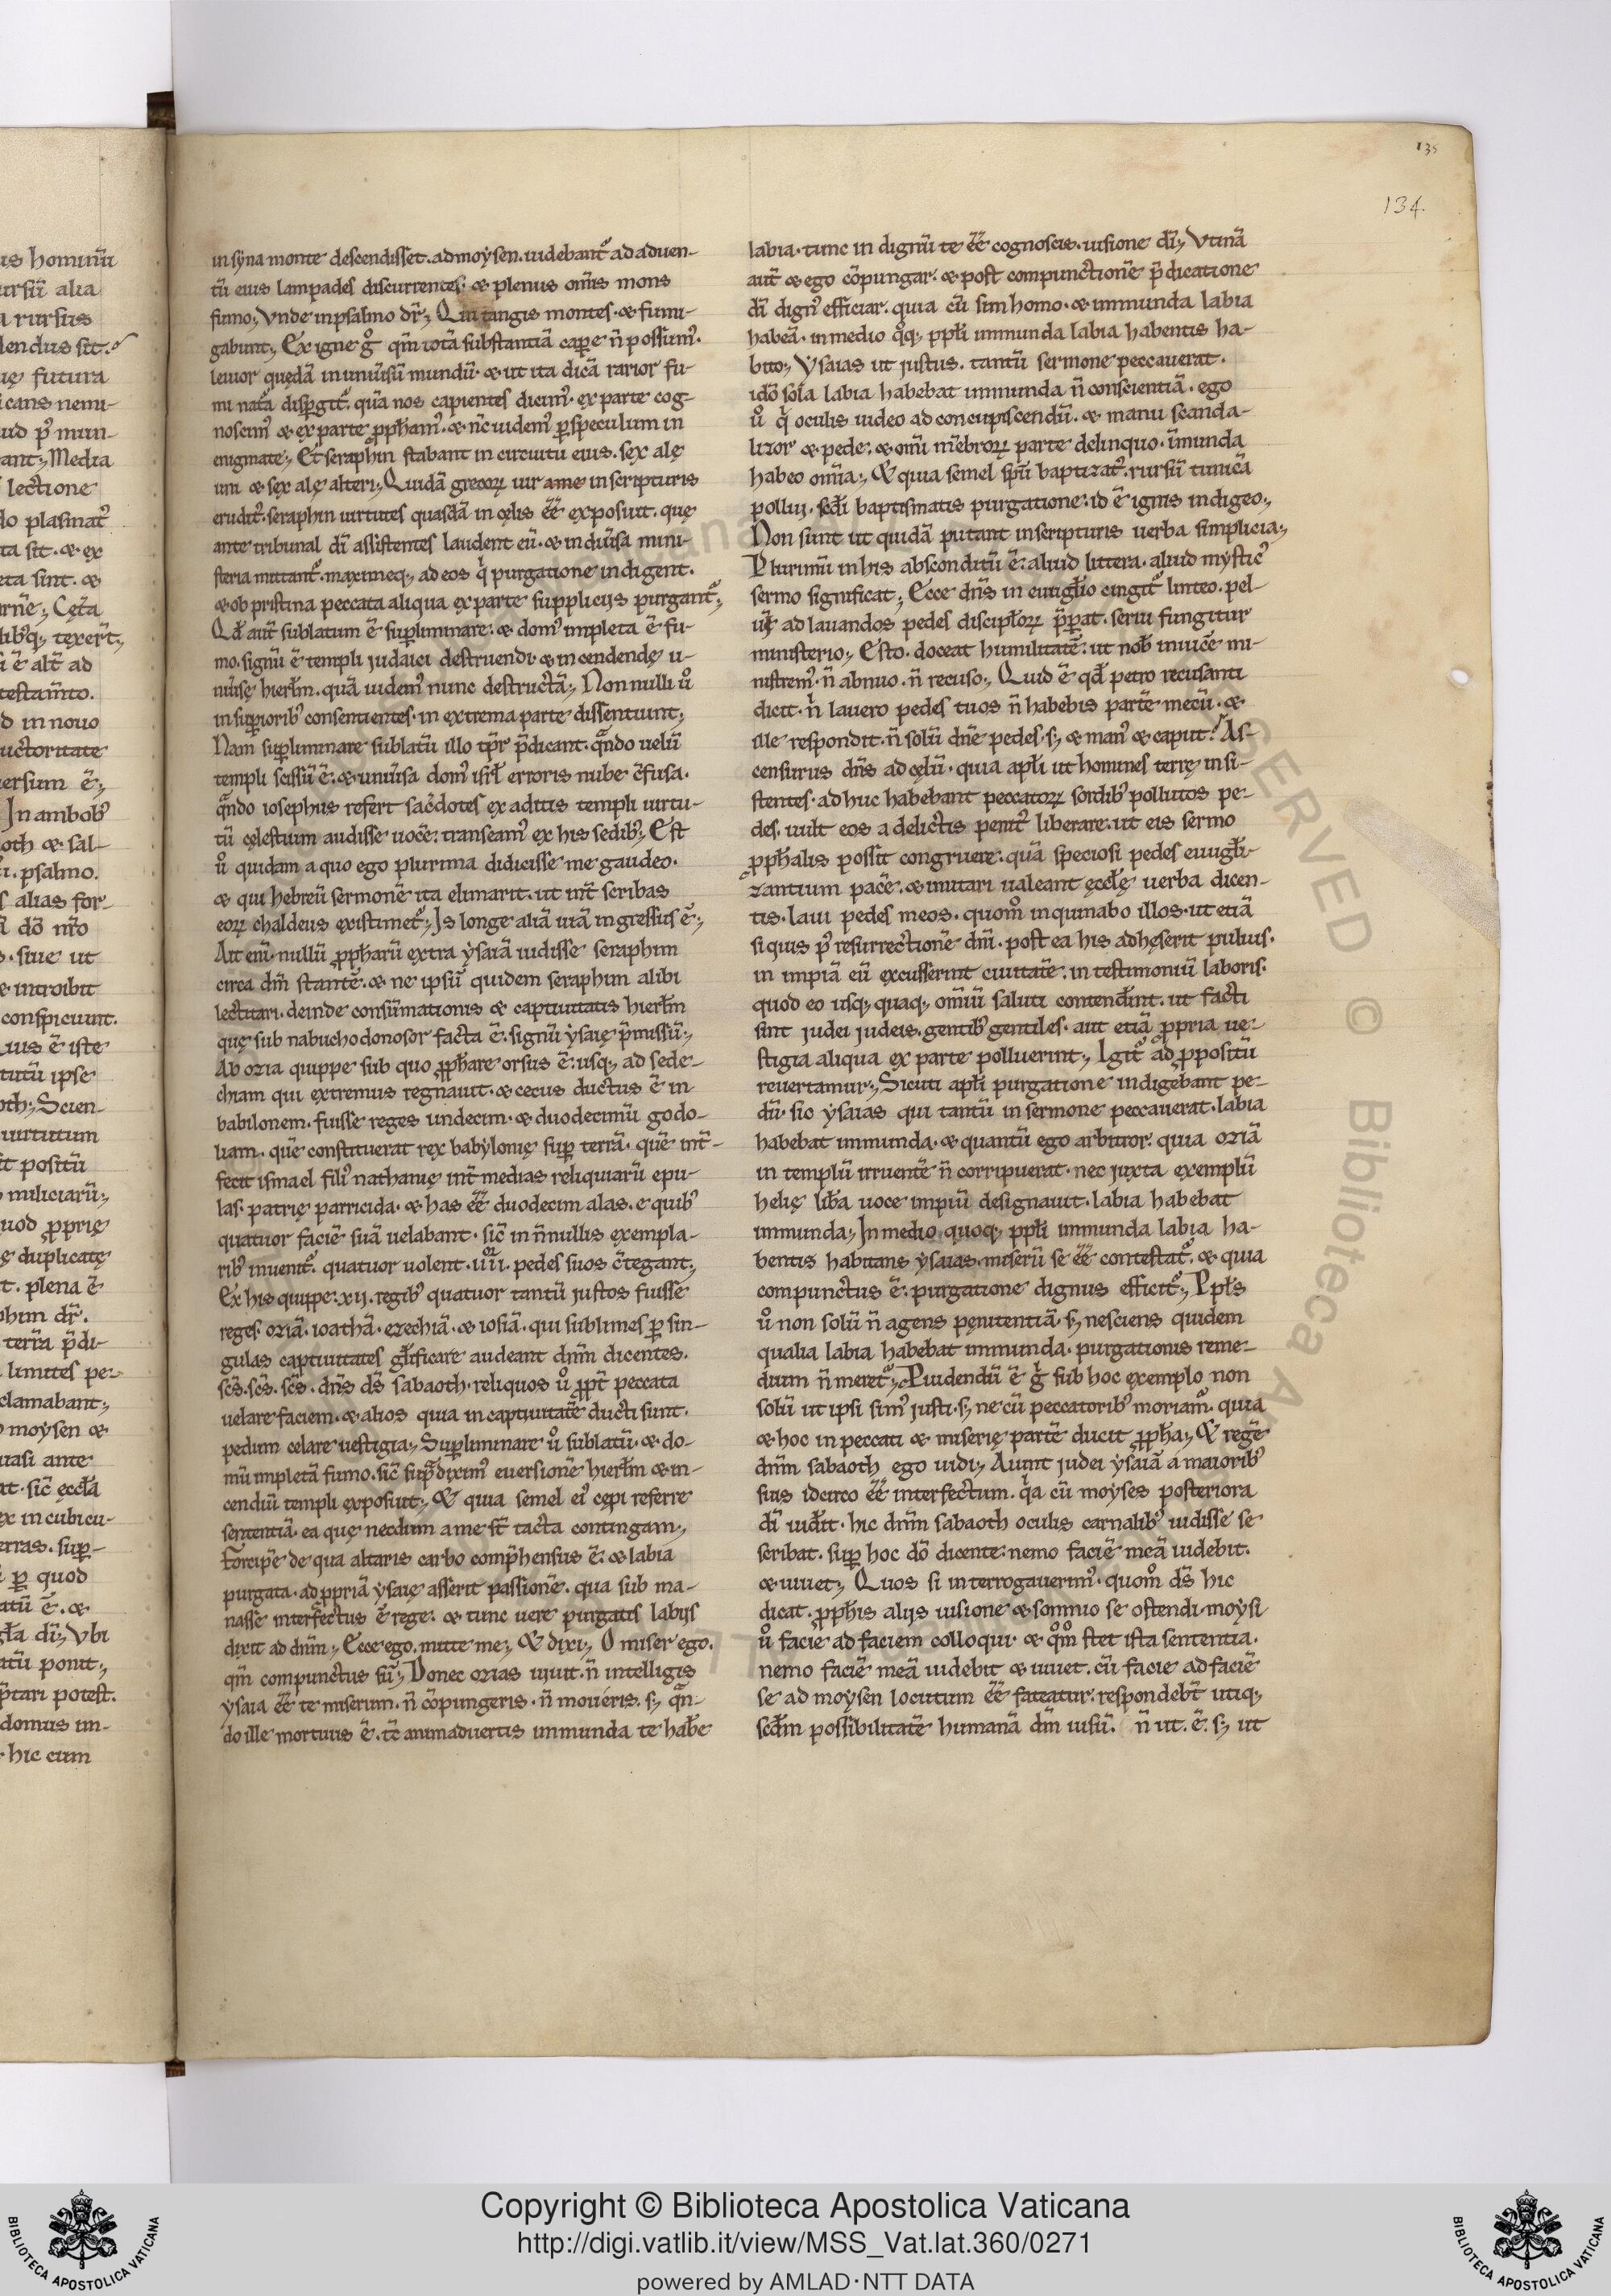 135
134.
in syna monte descendisset. ad moysen. uidebant᷑ ad aduen-
tũ eius lampades discurrentes. & plenus om̃is mons
fumo; Vnde in psalmo dr̃; Qui tangis montes. & fumi-
gabunt; Ex igne gͦ qm̃ totã substantiã caꝑe ñ possum᾽.
leuior quędã in uniũsũ mundũ. & ut ita dicã rarior fu-
mi nat᷑a disꝑgit᷑. quã nos capientes dicim᾽. ex parte cog-
noscim᾽ & ex parte ꝓpħam᾽. & ñc uidem᾽ ꝑ speculum in
enigmate; Et seraphin stabant in circuitu eius. sex alę
uni & sex alę alteri; Quidã grecoꝝ uir ame in scripturis
erudit᾽. seraphin uirtutes quasdã in cęlis ẽẽ exposuit. quę
ante tribunal dĩ assistentes laudent eũ. & in diũsa mini-
steria mittant᷑. maximeq; ad eos qͥ purgatione indigent.
& ob pristina peccata aliqua ex parte supplicijs purgant᷑;
Qđ aut̃ sublatum ẽ suꝑliminare. & dom᾽ impleta ẽ fu-
mo. signũ ẽ templi judaici destruendi. & incendendę u-
niũsę hierłm. quã uidem᾽ nunc destructã; Nonnulli uͦ
in suꝑiorib᾽ consentientes. in extrema parte dissentiunt;
Nam suꝑliminare sublatũ illo tp̃r p̃dicant. qñdo uelũ
templi scissũ ẽ. & uniũsa dom᾽ isrł erroris nube c̃fusa.
qñdo iosephus refert sac̃dotes ex aditis templi uirtu-
tũ cęlestium audisse uocẽ. transeam᾽ ex his sedib᾽; Est
uͦ quidam a quo ego plurima didicisse me gaudeo.
& qui hebreũ sermonẽ ita elimarit. ut int̃ scribas
eoꝝ chaldeus existimet᷑; Is longe aliã uiã ingressus ẽ;
Ait eni᷑. nullũ ꝓpħarũ extra ysaiã uidisse seraphim
circa dm̃ stantẽ. & ne ipsũ quidem seraphim alibi
lectitari. deinde consũmationis & captiuitatis hierłm
quę sub nabuchodonosor facta ẽ. signũ ysaię p̃missũ;
Ab ozia quippe sub quo ꝓpħare orsus ẽ. usq; ad sede-
chiam qui extremus regnauit. & cecus ductus ẽ in
babilonem. fuisse reges undecim. & duodecimũ godo-
liam. quẽ constituerat rex babylonię suꝑ terrã. quẽ int̃-
fecit ismael fili᾽ nathanię int̃ medias reliquiarũ epu-
las. patrię parricida. & has ẽẽ duodecim alas. e quib᾽
quatuor faciẽ suã uelabant. sic̃ in ñnullis exempla-
rib᾽ inuenit᷑. quatuor uolent. iiij. pedes suos c̃tegant;
Ex his quippe. xij. regib᾽ quatuor tantũ justos fuisse
reges. oziã. ioathã. ezechiã. & iosiã. qui sublimes ꝑ sin-
gulas captiuitates głificare audeant dnm̃ dicentes.
scs̃. scs̃. scs̃. dñs ds̃ sabaoth. reliquos uͦ ꝓpt̃ peccata
uelare faciem. & alios quia in captiuitatẽ ducti sunt.
pedum celare uestigia; Suꝑliminare uͦ sublatũ. & do-
mũ impletã fumo. sic̃ sup̃ diximᾱ euersionẽ hierłm & in-
cendiũ templi exposuit; & quia semel ei᾽ cępi referre
sententiã. ea quę necdum a me st̃ tacta contingam;
Forcipẽ de qua altaris carbo comp̃hensus ẽ. & labia
purgata. ad ꝓpriã ysaię asserit passionẽ. qua sub ma-
nasse interfectus ẽ rege. & tunc uere purgatis labijs
dixit ad dnm̃; Ecce ego. mitte me; & dixi; O miser ego.
qm̃ compunctus sũ; Donec ozias uiuit. ñ intelligis
ysaia ẽẽ te miserum. ñ cõpungeris. ñ moueris. s; qñ-
do ille mortuus ẽ. tc̃ animaduertis immunda te habe
labia. tunc in dignũ te ẽẽ cognoscis. uisione dĩ; Vtinã
aut̃ & ego cõpungar. & post compunctionẽ p̃dicatione
dĩ dign᾽ efficiar. quia cũ sim homo. & immunda labia
habeã. in medio qͦq; ppłi immunda labia habentis ha-
bito; Ysaias ut justus. tantũ sermone peccauerat.
idõ sola labia habebat immunda ñ conscientiã. ego
uͦ qͥ oculis uideo ad concupiscendũ. & manu scanda-
lizor & pede. & om̃i mẽbroꝝ parte delinquo. ĩmunda
habeo om̃ia; & quia semel sp̃u baptizat᾽. rursũ tunicã
pollui. scđi baptismatis purgatione. id ẽ ignis indigeo;
Non sunt ut quidã putant in scripturis uerba simplicia;
Plurimũ in his absconditũ ẽ. aliud littera. aliud mystic᾽
sermo significat; Ecce dñs in euũgłio cingit᷑ linteo. pel-
uẽ ad lauandos pedes discipłoꝝ p̃parat. serui fungitur
ministerio; Esto. doceat humilitatẽ. ut nob᾽ inuicẽ mi-
nistrem᾽. ñ abnuo. ñ recuso; Quid ẽ qđ petro recusanti
dicit. ñ lauero pedes tuos ñ habebis partẽ mecũ. &
ille respondit. ñ solũ dñe pedes. s; & man᾽ & caput? As-
censurus dñs ad cęlũ. quia apłi ut homines terrę insi-
stentes. adhuc habebant peccatoꝝ sordib᾽ pollutos pe-
des. uult eos a delictis penit᾽ liberare. ut eis sermo
ꝓpħalis possit congruere. quã speciosi pedes euũgłi-
zantium pacẽ. & imitari ualeant ęccłę uerba dicen-
tis. laui pedes meos. quomͦ inquinabo illos. ut etiã
si quis p᾽ resurrectionẽ dnĩ. post ea his adhęserit puluis.
in impiã eũ excusserint ciuitatẽ. in testimoniũ laboris.
quod eo usq; quaq; om̃iũ saluti contendr̃int. ut facti
sint judei judeis. gentib᾽ gentiles. aut etiã ꝓpria ue-
stigia aliqua ex parte polluerint; Igit᷑ ad ꝓpositũ
reuertamur; Sicuti apłi purgatione indigebant pe-
dũ. sic ysaias qui tantũ in sermone peccauerat. labia
habebat immunda. & quantũ ego arbitror. quia oziã
in templũ irruentẽ ñ corripuerat. nec juxta exemplũ
helię libr̃a uoce impiũ designauit. labia habebat
immunda; In medio quoq; ppłi immunda labia ha-
bentis habitans ysaias. miserũ se ẽẽ contestat᷑. & quia
compunctus ẽ. purgatione dignus efficit᷑; Ppłs
uͦ non solũ ñ agens pęnitentiã. s; nesciens quidem
qualia labia habebat immunda. purgationis reme-
dium ñ meret᷑; Puidendũ ẽ gͥ sub hoc exemplo non
solũ ut ipsi sim᾽ justi. s; ne cũ peccatorib᾽ moriam᷑. quia
& hoc in peccati & miserię partẽ ducit ꝓpħa; & regẽ
dnm̃ sabaoth ego uidi; Aiunt judei ysaiã a maiorib᾽
suis idcirco ẽẽ interfectum. qͥa cũ moyses posteriora
dĩ uidr̃it. hic dnm̃ sabaoth oculis carnalib᾽ uidisse se
scribat. suꝑ hoc dõ dicente. nemo faciẽ meã uidebit.
& uiuet; Quos si interrogauerim᾽. quomͦ ds̃ hic
dicat. ꝓpħis alijs uisione & somnio se ostendi. moysi
uͦ facie ad faciem colloqui. & qͦmͦ stet ista sententia.
nemo faciẽ meã uidebit & uiuet. cũ facie ad faciẽ
se ad moysen locutum ẽẽ fateatur. respondebt̃ utiq;
scđm possibilitatẽ humanã dm̃ uisũ. ñ ut. ẽ. s; ut
Copyright © Biblioteca Apostolica Vaticana
http://digi.vatlib.it/view/MSS_Vat.lat.360/0271
powered by AMLAD·NTT DATA